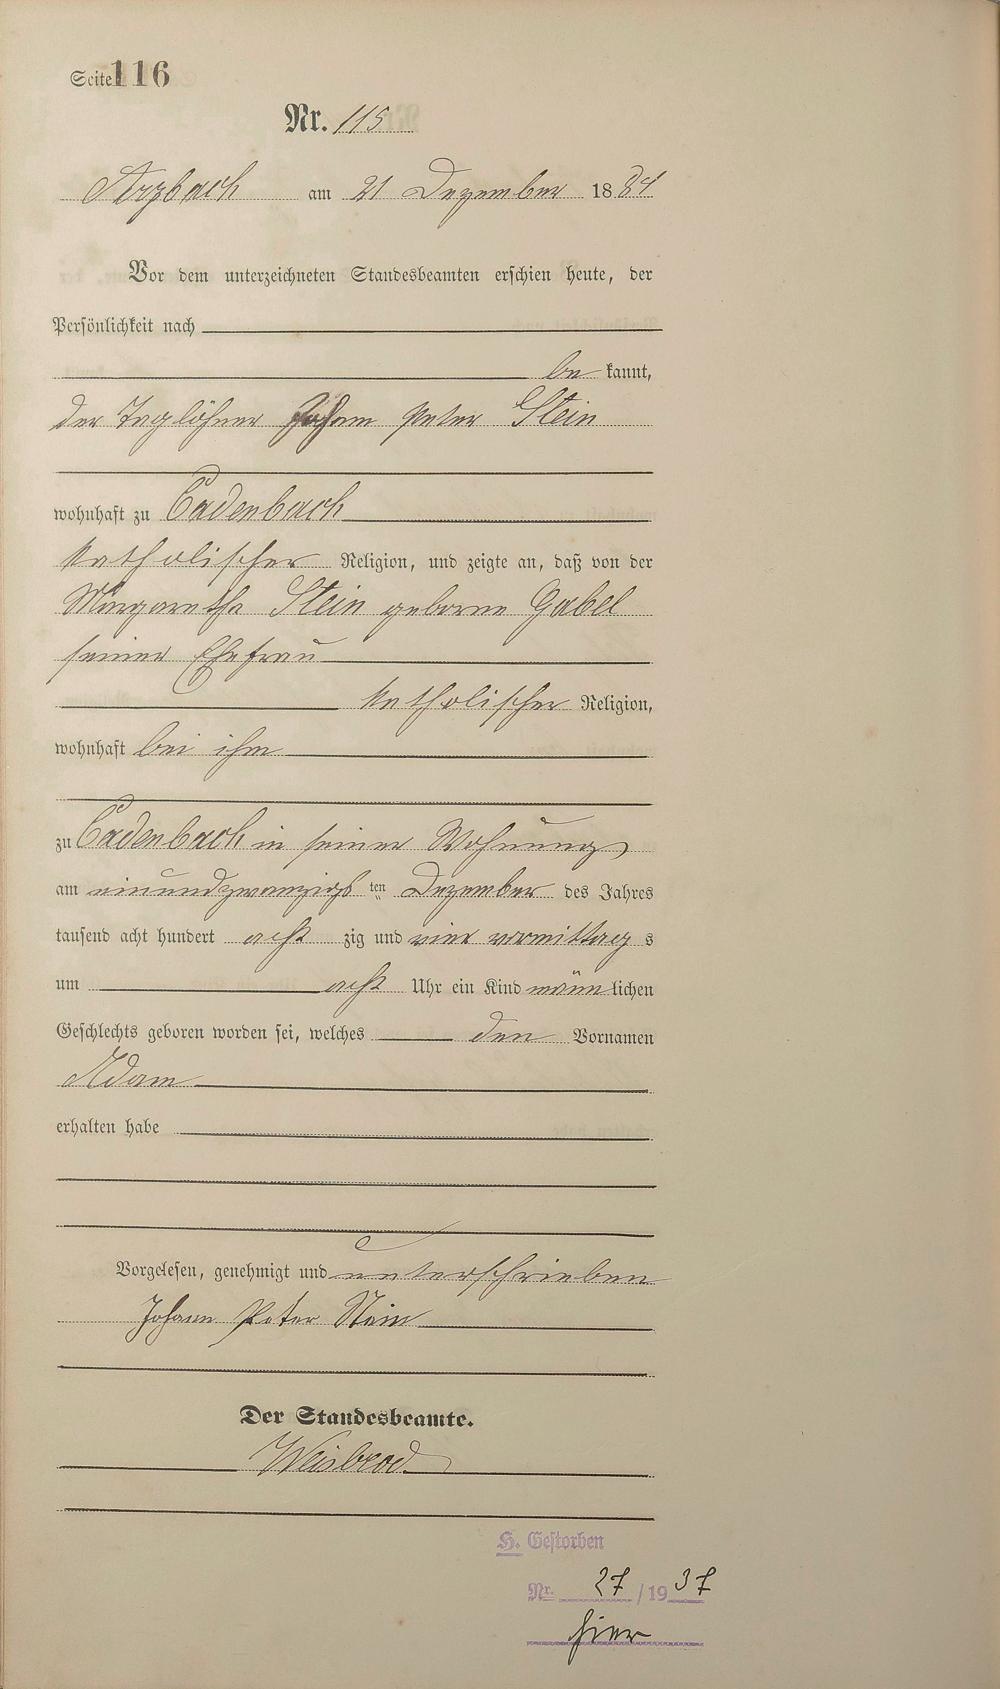 Seite 116
Nr. 115
Arzbach am 21 Dezember 1884
Vor dem unterzeichneten Standesbeamten erschien heute, der
Persönlichkeit nach
be kannt,
der Taglöhner Johann Peter Stein
wohnhaft zu Cadenbach
katholischer Religion, und zeigte an, daß von der
Margaretha Stein geborne Gabel
seiner Ehefrau
katholischer Religion,
wohnhaft bei ihm
zu Cadenbach in seiner Wohnung
am einundzwanzigs ten Dezember des Jahres
tausend acht hundert acht zig und vier vormittag s
um acht Uhr ein Kind männ lichen
Geschlechts geboren worden sei, welches den Vornamen
Adam
erhalten habe
Vorgelesen, genehmigt und unterschrieben
Johann Peter Stein
Der Standesbeamte.
Weisbrod
H. Gestorben
Nr. 27 / 1937
hier